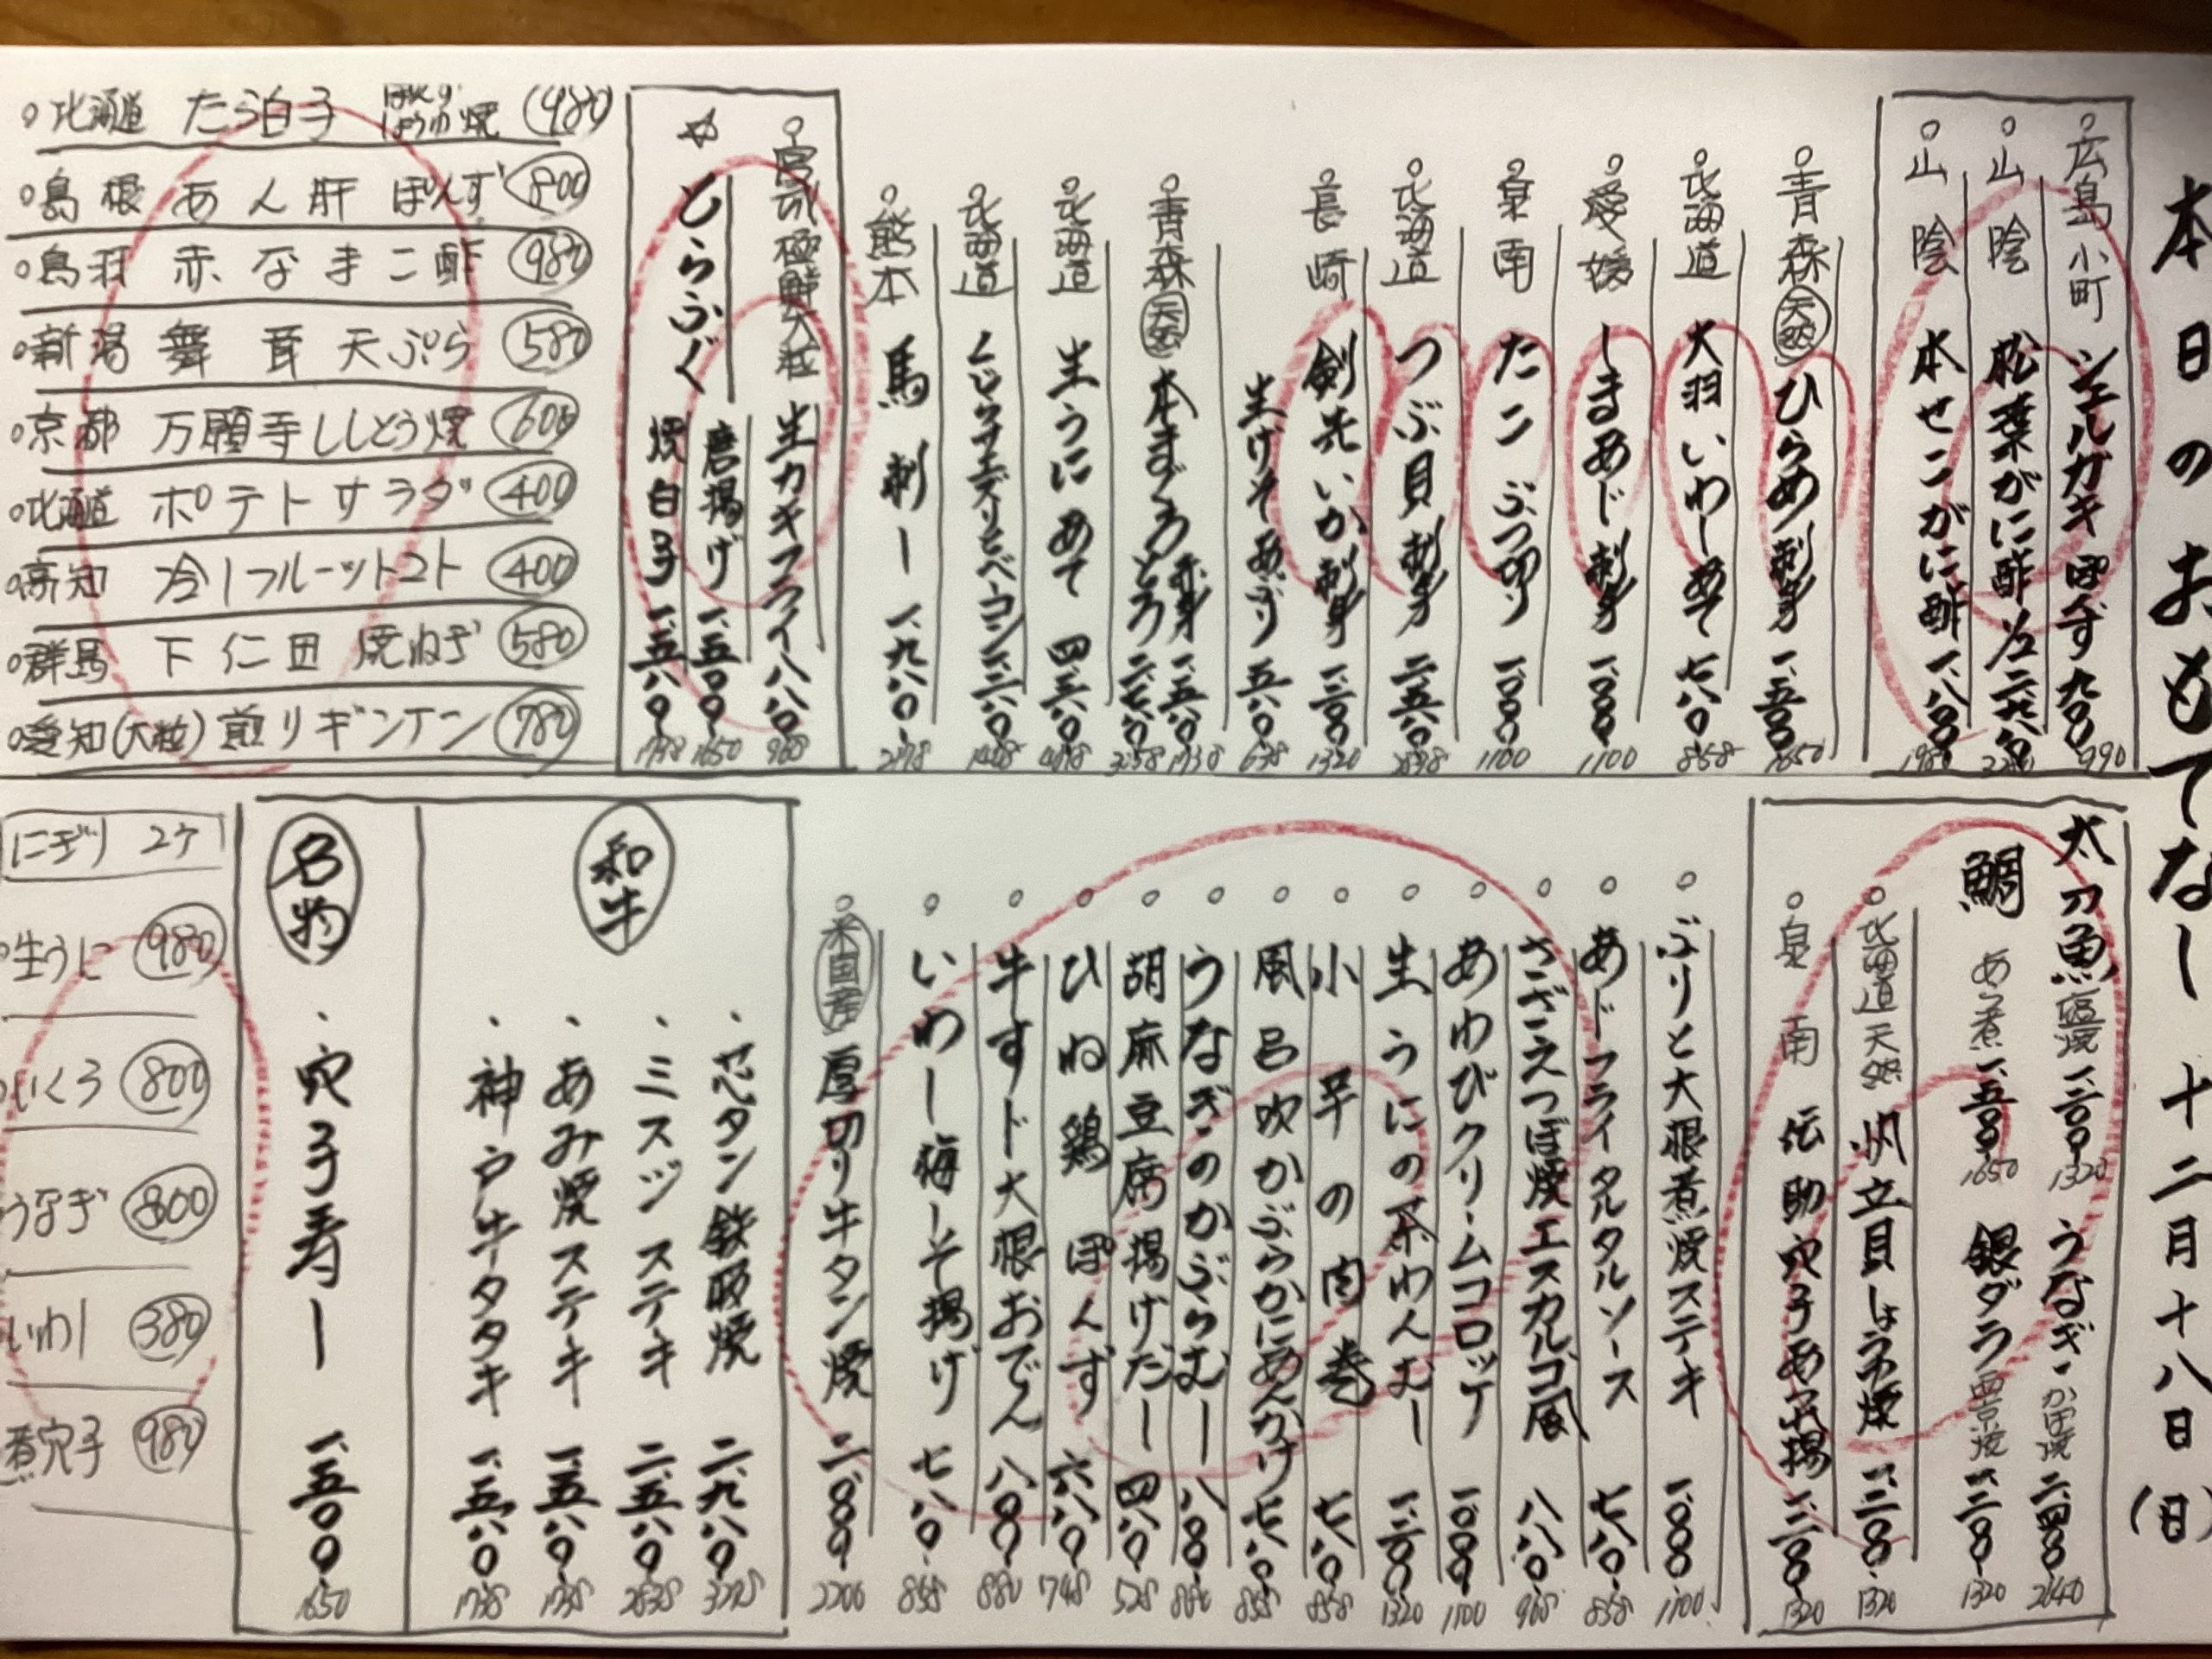 本日のおもてなし 十二月十八日(日)
広島小町 シェルガキ ぽんず 九〇〇 990
山陰 松葉がに酢
山陰 本せこがに酢 一、八〇〇 1980
青森 天然 ひらめ 刺身 一、五〇〇 1650
北海道 大羽いわし あて 七八〇 858
愛媛 しまあじ 刺身 一、〇〇〇 1100
泉南 たこ ぶつ切り 一、〇〇〇 1100
北海道 つぶ貝 刺身
長崎 剣先いか 刺身 一、二〇〇 1320
生げそ あぶり 五八〇 638
青森 天然 本まぐろ 赤身 一、五八〇 1738
とろ
北海道 生うに あて
北海道 ベーコン
熊本 馬刺し 一、九八〇 2178
宮城 極鮮大粒 生カキフライ 八八〇 968
☆とらふぐ 唐揚げ 一、五〇〇 1650
焼白子 一、五八〇 1738
北海道 たら白子 ぽんず しょうゆ焼 980
島根 あん肝 ぽんず 800
鳥羽 赤なまこ酢 980
新潟 舞茸天ぷら 580
京都 万願寺ししとう焼 600
北海道 ポテトサラダ 400
高知 冷しフルーツトマト 400
群馬 下仁田 焼ねぎ 580
愛知(大粒) 煎りギンナン 780
太刀魚 塩焼 一、二〇〇 1320 うなぎ かば焼 二、四〇〇 2640
鯛 あら煮 一、五〇〇 1650 銀ダラ 西京焼 一、二〇〇 1320
北海道 天然 帆立貝しょうゆ焼 一、二〇〇 1320
泉南 伝助穴子 一、二〇〇 1320
ぶりと大根煮焼ステキ 一、〇〇〇 1100
あじフライタルタルソース 七八〇 858
さざえつぼ焼エスカルゴ風 八八〇 968
あわびクリームコロッケ 一、〇〇〇 1100
生うにの茶わんむし 一、二〇〇 1320
小芋の肉巻 七八〇 858
風呂吹かぶらかにあんかけ 七八〇 858
うなぎのかぶらむし 八〇〇 880
胡麻豆腐揚げだし 四八〇 528
ひね鶏ぽんず 六八〇 748
牛すじ大根おでん 八〇〇 880
いわし梅しそ揚げ 七八〇 858
米国産 厚切り牛タン焼 二、〇〇〇 2200
和牛
・芯タン鉄板焼 二、九八〇 3278
・ミスジステキ 二、五八〇 2838
・あみ焼ステキ 一、五八〇 1738
・神戸牛タタキ 一、五八〇 1738
名物
・穴子寿し 一、五〇〇 1650
にぎり 2ケ
生うに 980
いくら 800
うなぎ 800
いわし 380
煮穴子 980